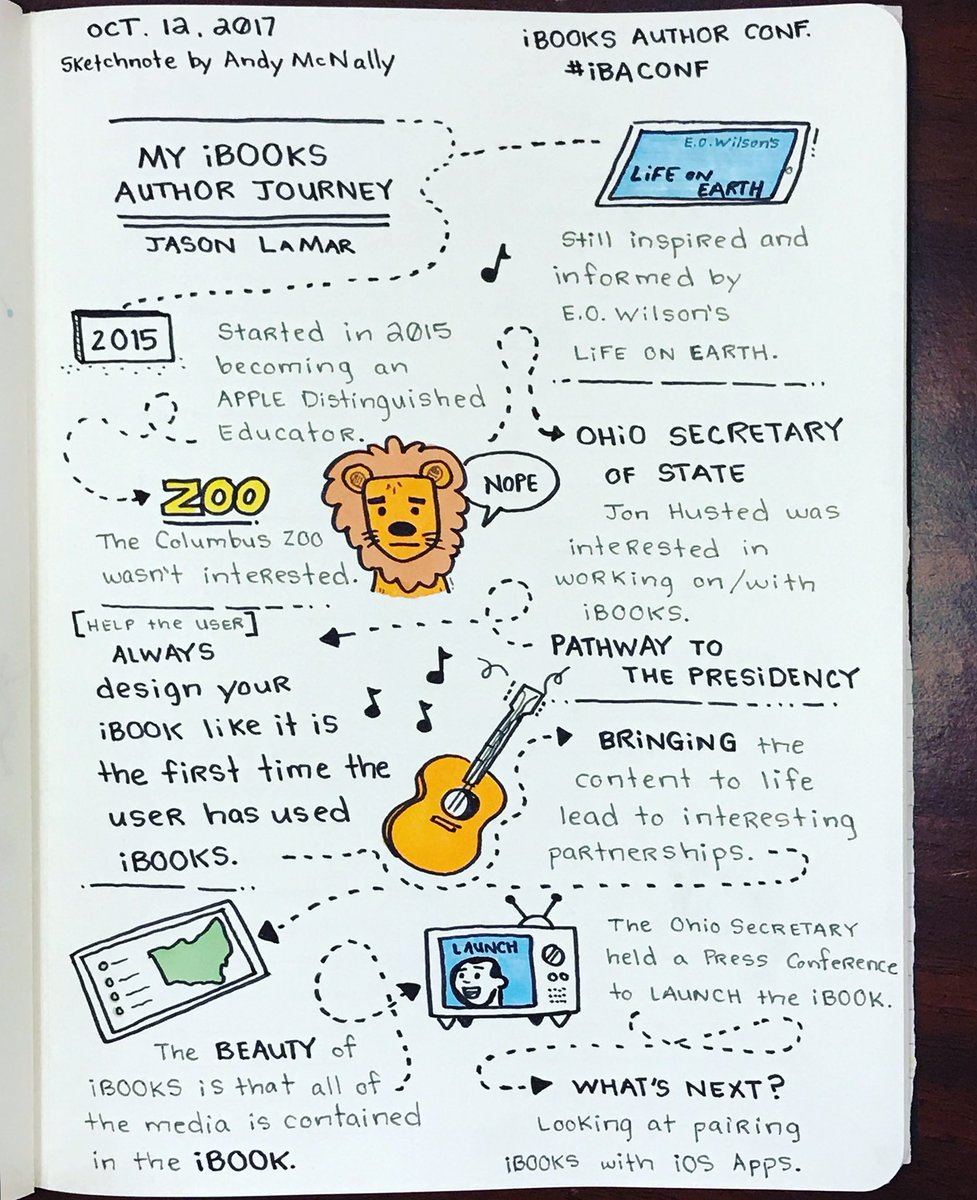 OCT. 12, 2017
Sketchnote by Andy McNally
iBOOKS AUTHOR CONF.
#iBACONF
MY iBOOKS
AUTHOR JOURNEY
JASON LAMAR
E.O. Wilson's
LiFE ON
EARTH
Still inspired and
informed by
E.O. Wilson's
LiFE ON EARTH.
2015
Started in 2015
becoming an
APPLE Distinguished
Educator.
ZOO
The Columbus ZOO
wasn't interested.
NOPE
OHiO SECRETARY
OF STATE
Jon Husted was
interested in
working on/with
iBOOKS.
PATHWAY TO
THE PRESiDENCY
[HELP the USER]
ALWAYS
design your
iBOOK like it is
the first time the
user has used
iBOOKS.
BRiNGiNG the
content to life
lead to interesting
partnerships.
LAUNCH
The Ohio SECRETARY
held a Press Conference
to LAUNCH the iBOOK.
The BEAUTY of
iBOOKS is that all of
the media is contained
in the iBOOK.
WHAT'S NEXT?
Looking at pairing
iBOOKS with iOS Apps.